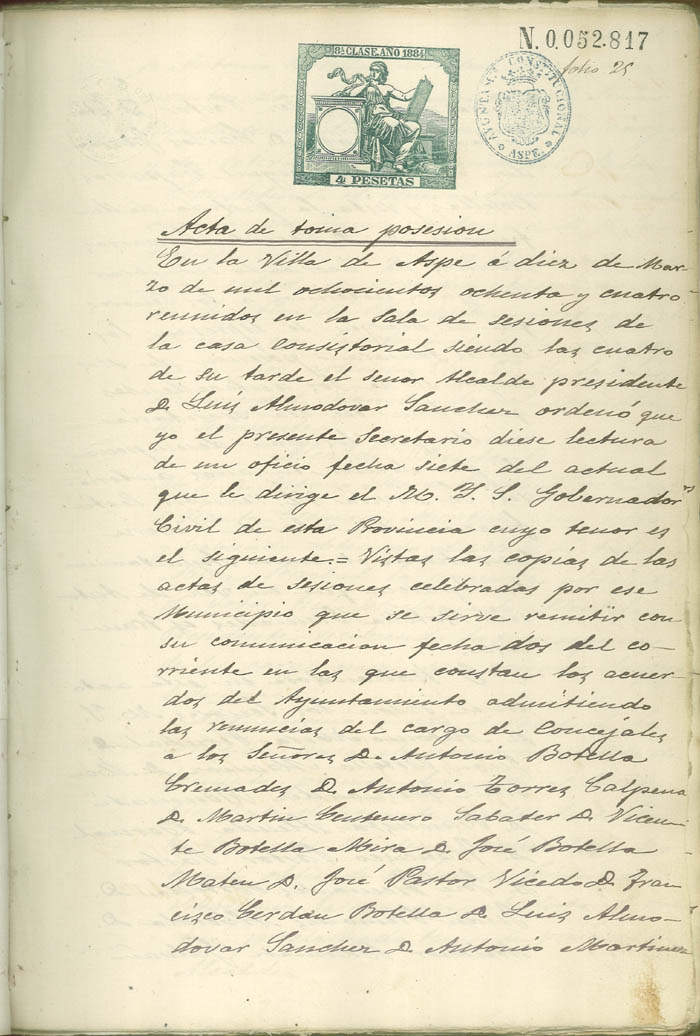 8ª CLASE. AÑO 1884
4 PESETAS
N. 0.052.817
folio 25
AYUNTAM. CONSTITUCIONAL
ASPE.
Acta de toma posesion
En la Villa de Aspe á diez de Mar-
zo de mil ochocientos ochenta y cuatro
reunidos en la Sala de sesiones de
la casa Consistorial siendo las cuatro
de su tarde el señor Alcalde presidente
D. Luis Almodovar Sanchez ordenó que
yo el presente Secretario diese lectura
de un oficio fecha siete del actual
que le dirige el M. Y. S. Gobernador
Civil de esta Provincia cuyo tenor es
el siguiente.= Vistas las copias de las
actas de sesiones celebradas por ese
Municipio que se sirve remitir con
su comunicacion fecha dos del co-
rriente en las que constan los acuer-
dos del Ayuntamiento admitiendo
las renuncias del cargo de Concejales
a los Señores D. Antonio Botella
Cremades D. Antonio Torres Calpena
D. Martin Centenero Sabater D. Vicen-
te Botella Mira D. José Botella
Mateu D. José Pastor Vicedo D. Fran
cisco Cerdán Botella D. Luis Almo-
dovar Sanchez D. Antonio Martinez